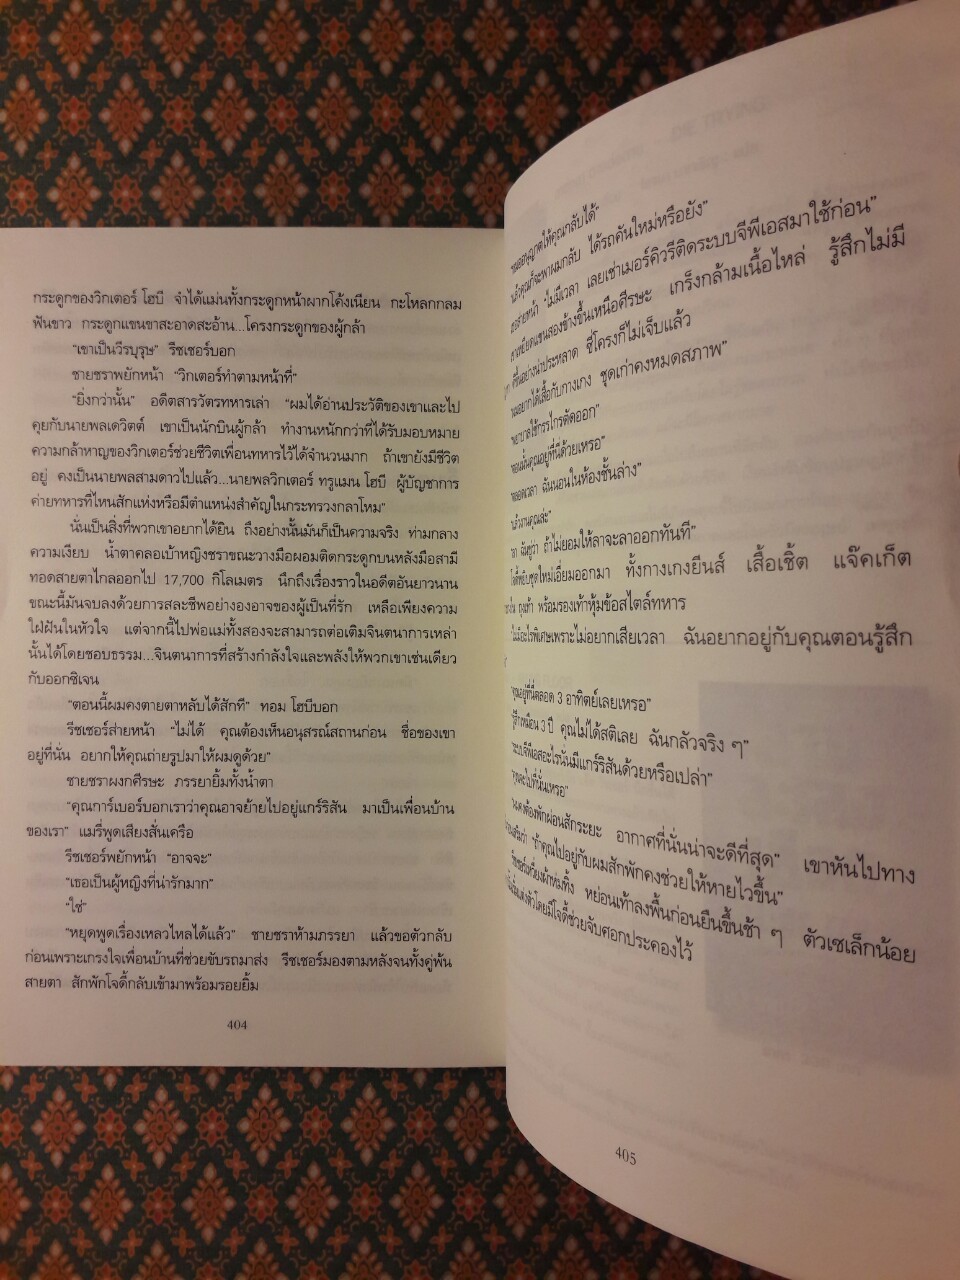 กระดูกของวิกเตอร์ โฮบี จำได้แม่นทั้งกระดูกหน้าผากโค้งเนียน กะโหลกกลม
ฟันขาว กระดูกแขนขาสะอาดสะอ้าน...โครงกระดูกของผู้กล้า
“เขาเป็นวีรบุรุษ” รีชเชอร์บอก
ชายชราพยักหน้า “วิกเตอร์ทำตามหน้าที่”
“ยิ่งกว่านั้น” อดีตสารวัตรทหารเล่า “ผมได้อ่านประวัติของเขาและไป
คุยกับนายพลเดวิตต์ เขาเป็นนักบินผู้กล้า ทำงานหนักกว่าที่ได้รับมอบหมาย
ความกล้าหาญของวิกเตอร์ช่วยชีวิตเพื่อนทหารไว้ได้จำนวนมาก ถ้าเขายังมีชีวิต
อยู่ คงเป็นนายพลสามดาวไปแล้ว...นายพลวิกเตอร์ ทรูแมน โฮบี ผู้บัญชาการ
ค่ายทหารที่ไหนสักแห่งหรือมีตำแหน่งสำคัญในกระทรวงกลาโหม”
นั่นเป็นสิ่งที่พวกเขาอยากได้ยิน ถึงอย่างนั้นมันก็เป็นความจริง ท่ามกลาง
ความเงียบ น้ำตาคลอเบ้าหญิงชราขณะวางมือผอมติดกระดูกบนหลังมือสามี
ทอดสายตาไกลออกไป 17,700 กิโลเมตร นึกถึงเรื่องราวในอดีตอันยาวนาน
ขณะนี้มันจบลงด้วยการสละชีพอย่างองอาจของผู้เป็นที่รัก เหลือเพียงความ
ใฝ่ฝันในหัวใจ แต่จากนี้ไปพ่อแม่ทั้งสองจะสามารถต่อเติมจินตนาการเหล่า
นั้นได้โดยชอบธรรม...จินตนาการที่สร้างกำลังใจและพลังให้พวกเขาเช่นเดียว
กับออกซิเจน
“ตอนนี้ผมคงตายตาหลับได้สักที” ทอม โฮบีบอก
รีชเชอร์ส่ายหน้า “ไม่ได้ คุณต้องเห็นอนุสรณ์สถานก่อน ชื่อของเขา
อยู่ที่นั่น อยากให้คุณถ่ายรูปมาให้ผมดูด้วย”
ชายชราผงกศีรษะ ภรรยายิ้มทั้งน้ำตา
“คุณการ์เบอร์บอกเราว่าคุณอาจย้ายไปอยู่แกร์ริสัน มาเป็นเพื่อนบ้าน
ของเรา” แมรี่พูดเสียงสั่นเครือ
รีชเชอร์พยักหน้า “อาจจะ”
“เธอเป็นผู้หญิงที่น่ารักมาก”
“ใช่”
“หยุดพูดเรื่องเหลวไหลได้แล้ว” ชายชราห้ามภรรยา แล้วขอตัวกลับ
ก่อนเพราะเกรงใจเพื่อนบ้านที่ช่วยขับรถมาส่ง รีชเชอร์มองตามหลังจนทั้งคู่พ้น
สายตา สักพักโจดี้กลับเข้ามาพร้อมรอยยิ้ม
404
ให้คุณกลับได้”
ผมกลับ ได้รถคันใหม่หรือยัง”
“ไม่มีเวลา เลยเช่าเมอร์คิวรีติดระบบจีพีเอสมาใช้ก่อน”
แขนสองข้างขึ้นเหนือศีรษะ เกร็งกล้ามเนื้อไหล่ รู้สึกไม่มี
อย่างน่าประหลาด ซี่โครงก็ไม่เจ็บแล้ว
อยากได้เสื้อกับกางเกง ชุดเก่าคงหมดสภาพ”
ใช้กรรไกรตัดออก”
คุณอยู่ที่นี่ด้วยเหรอ”
ตลอดเวลา ฉันนอนในห้องชั้นล่าง”
แล้วงานคุณล่ะ”
ถ้าไม่ยอมให้ลาจะลาออกทันที”
หยิบชุดใหม่เอี่ยมออกมา ทั้งกางเกงยีนส์ เสื้อเชิ้ต แจ๊คเก็ต
ถุงเท้า พร้อมรองเท้าหุ้มข้อสไตล์ทหาร
ไม่มีอะไรพิเศษเพราะไม่อยากเสียเวลา ฉันอยากอยู่กับคุณตอนรู้สึก
คุณอยู่ที่นี่ตลอด 3 อาทิตย์เลยเหรอ”
รู้สึกเหมือน 3 ปี คุณไม่ได้สติเลย ฉันกลัวจริง ๆ”
อะไรนั่นมีแกร์ริสันด้วยหรือเปล่า”
จะไปที่นั่นเหรอ”
คงต้องพักผ่อนสักระยะ อากาศที่นั่นน่าจะดีที่สุด” เขาหันไปทาง
“ถ้าคุณไปอยู่กับผมสักพักคงช่วยให้หายไวขึ้น”
ผ้าห่มทิ้ง หย่อนเท้าลงพื้นก่อนยืนขึ้นช้า ๆ ตัวเซเล็กน้อย
แต่งตัวโดยมีโจดี้ช่วยจับศอกประคองไว้
405